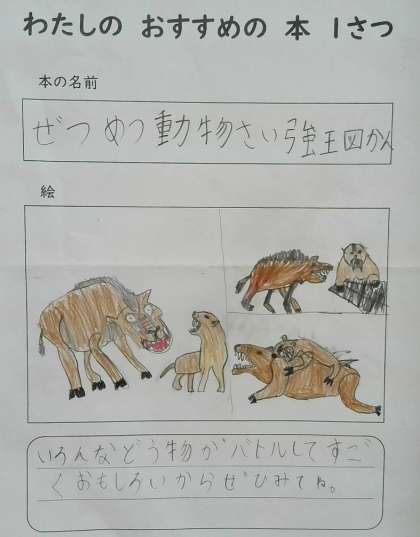 わたしの おすすめの 本 1さつ
本の名前
ぜつめつ動物さい強王図かん
絵
いろんなどう物がバトルしてすご
くおもしろいからぜひみてね。